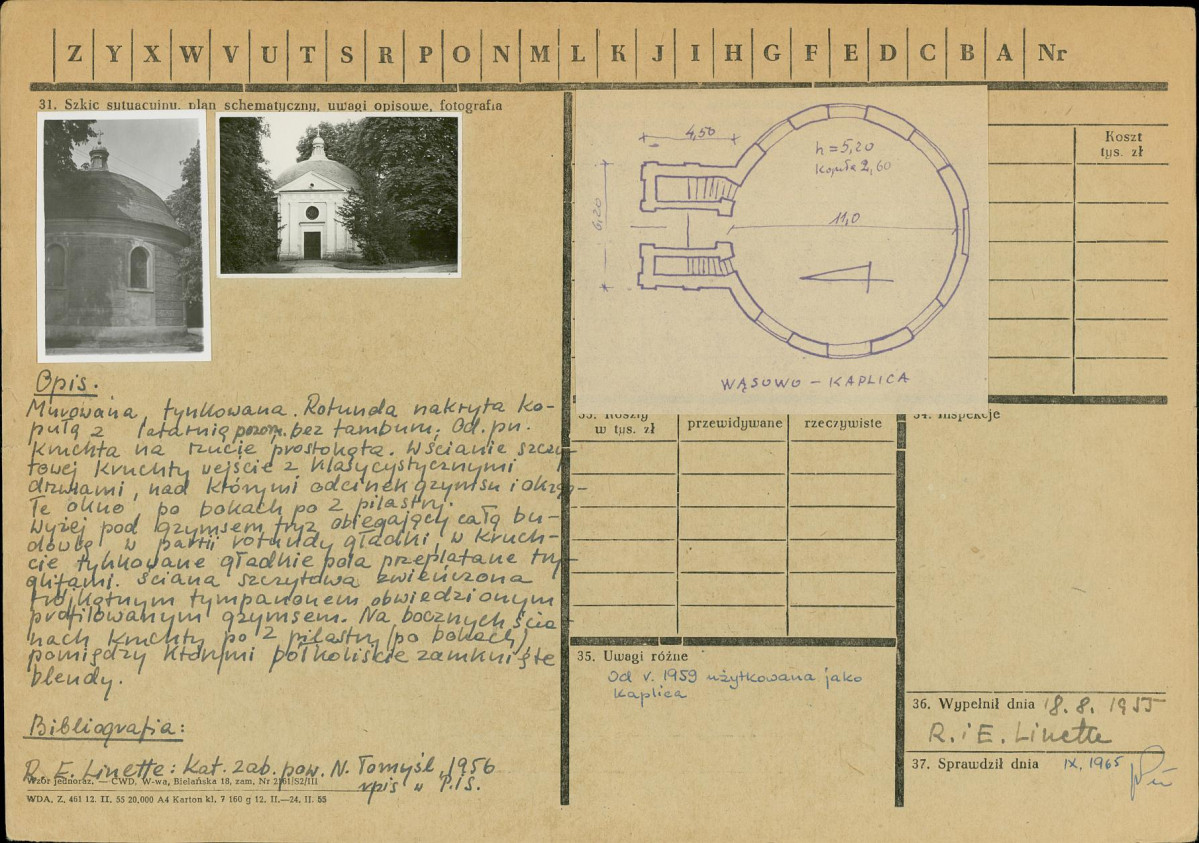 Z Y X W V U T S R P O N M L K J I H G F E D C B A Nr
31. Szkic sytuacyjny, plan schematyczny, uwagi opisowe, fotografia
Opis.
Murowana, tynkowana. Rotunda nakryta ko-
pułą z latarnią pozorn. bez tamburu. Od pn.
kruchta na rzucie prostokąta. W ścianie szczy-
towej kruchty wejście z klasycystycznymi
drzwiami, nad którymi odcinek gzymsu i okrąg-
łe okno po bokach po 2 pilastry.
Wyżej pod gzymsem fryz obiegający całą bu-
dowlę w partii rotundy gładki, w kruch-
cie tynkowane gładkie pola przeplatane try-
glifami. Ściana szczytowa zwieńczona
trójkątnym tympanonem obwiedzionym
profilowanym gzymsem. Na bocznych ścia
nach kruchty po 2 pilastry (po bokach)
pomiędzy którymi półkoliście zamknięte
blendy.
Bibliografia:
R. E. Linette: Kat. zab. pow. N. Tomyśl 1956
rpis w P.I.S.
Wzór jednoraz. — CWD, W-wa, Bielańska 18, zam. Nr 2161/S2/III
WDA, Z. 461 12. II. 55 20,000 A4 Karton kl. 7 160 g 12. II.—24. II. 55
4,50
h = 5,20
kopuła 2,60
6,20
11,0
WĄSOWO – KAPLICA
Koszt
tys. zł
33. Koszty
w tys. zł
przewidywane
rzeczywiste
34. Inspekcje
35. Uwagi różne
Od r. 1959 użytkowana jako
kaplica
36. Wypełnił dnia 18. 8. 1955
R. i E. Linette
37. Sprawdził dnia IX, 1965